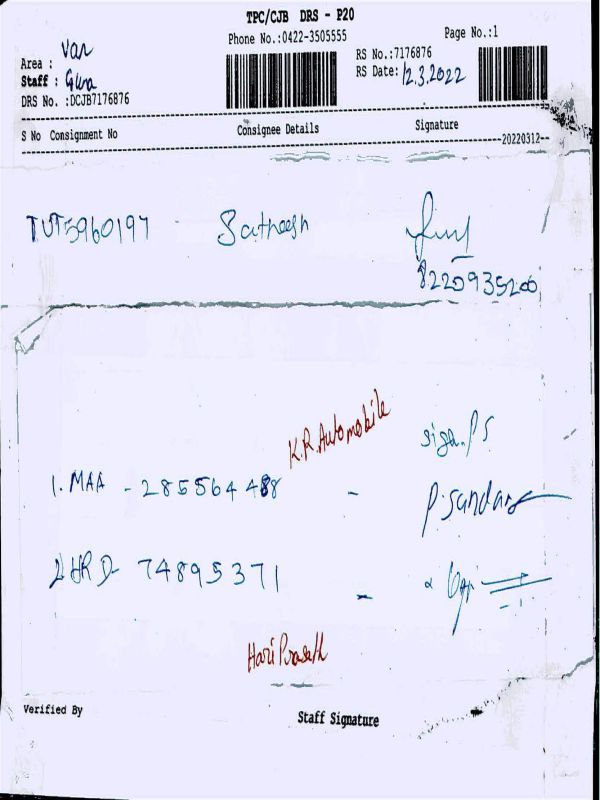 TPC/CJB DRS - P20
Phone No.:0422-3505555
Page No.:1
Area : Var
RS No.:7176876
Staff : Guna
RS Date: 12.3.2022
DRS No. :DCJB7176876
S No Consignment No Consignee Details Signature
--20220312--
TUT5960197 - Satheesh
8220935200
K.R.Automobile
1. MAA - 285564488 - P.Sundar
2. HRD- 74895371 -
Hari Prasath
Verified By
Staff Signature